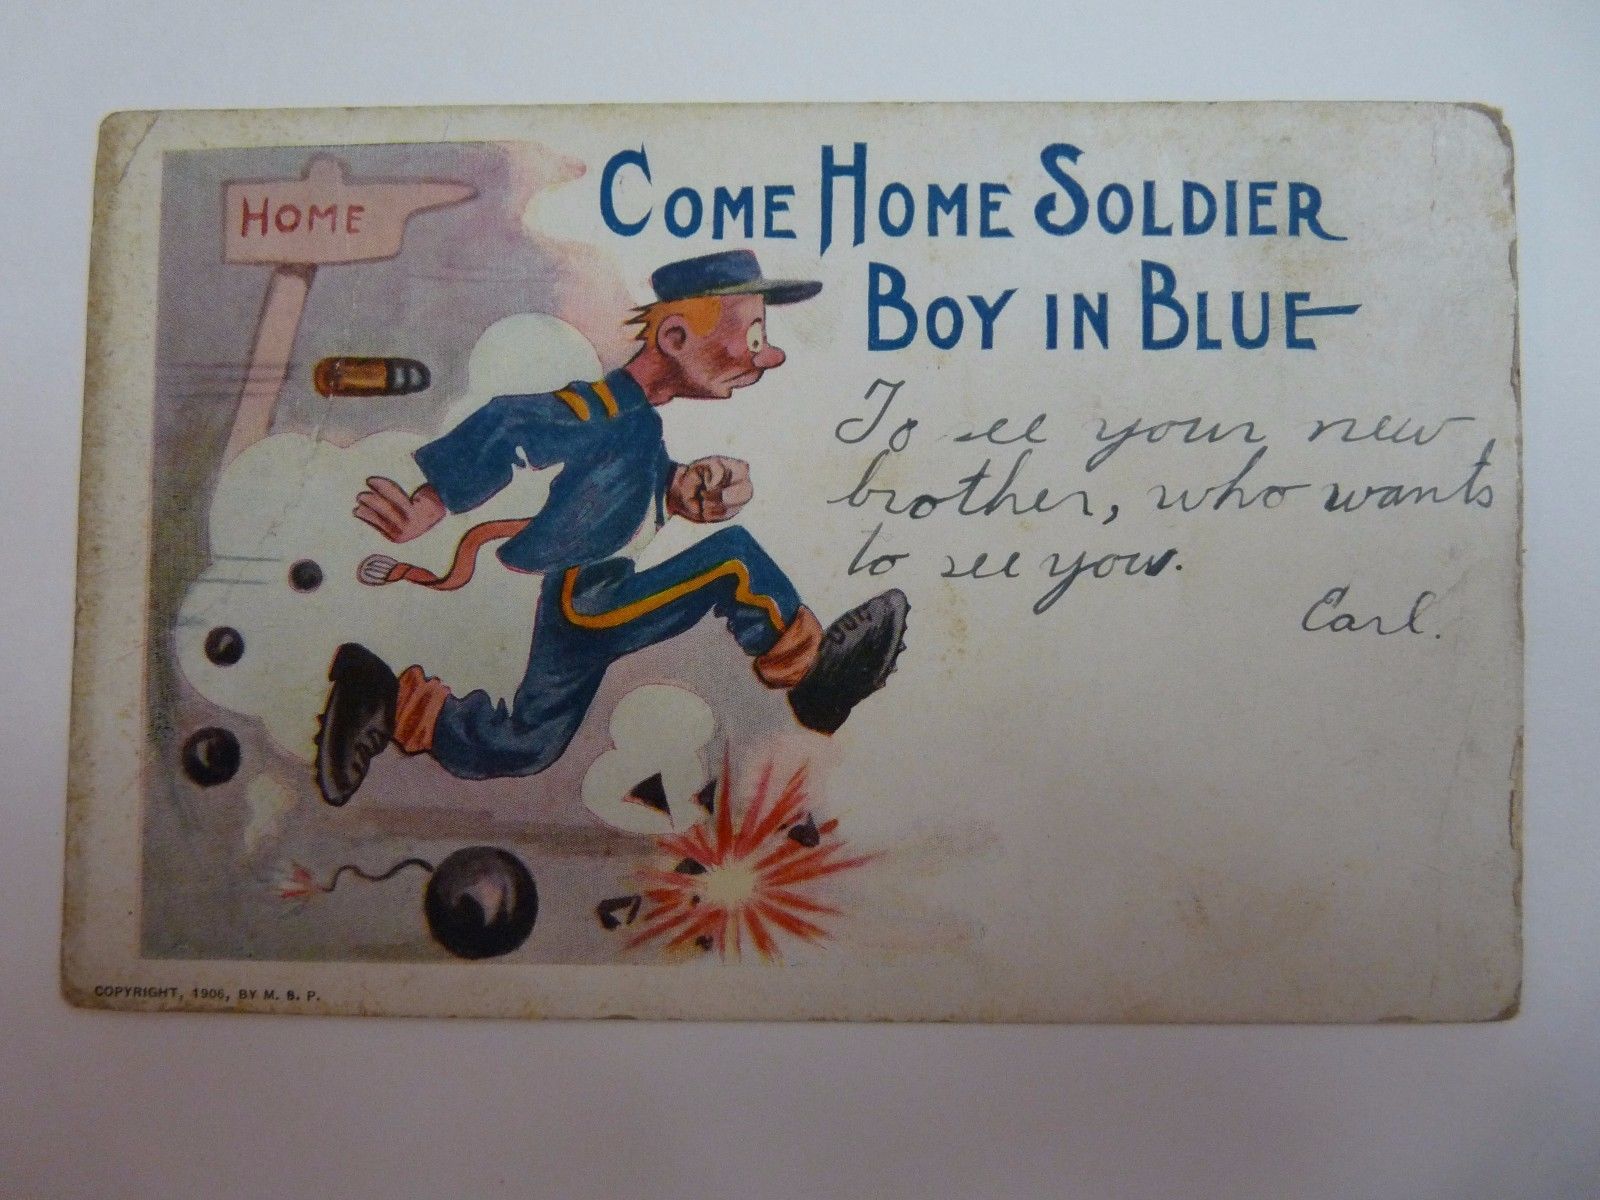 HOME
COME HOME SOLDIER
BOY IN BLUE
To see your new
brother, who wants
to see you.
Earl.
COPYRIGHT, 1906, BY M. S. P.